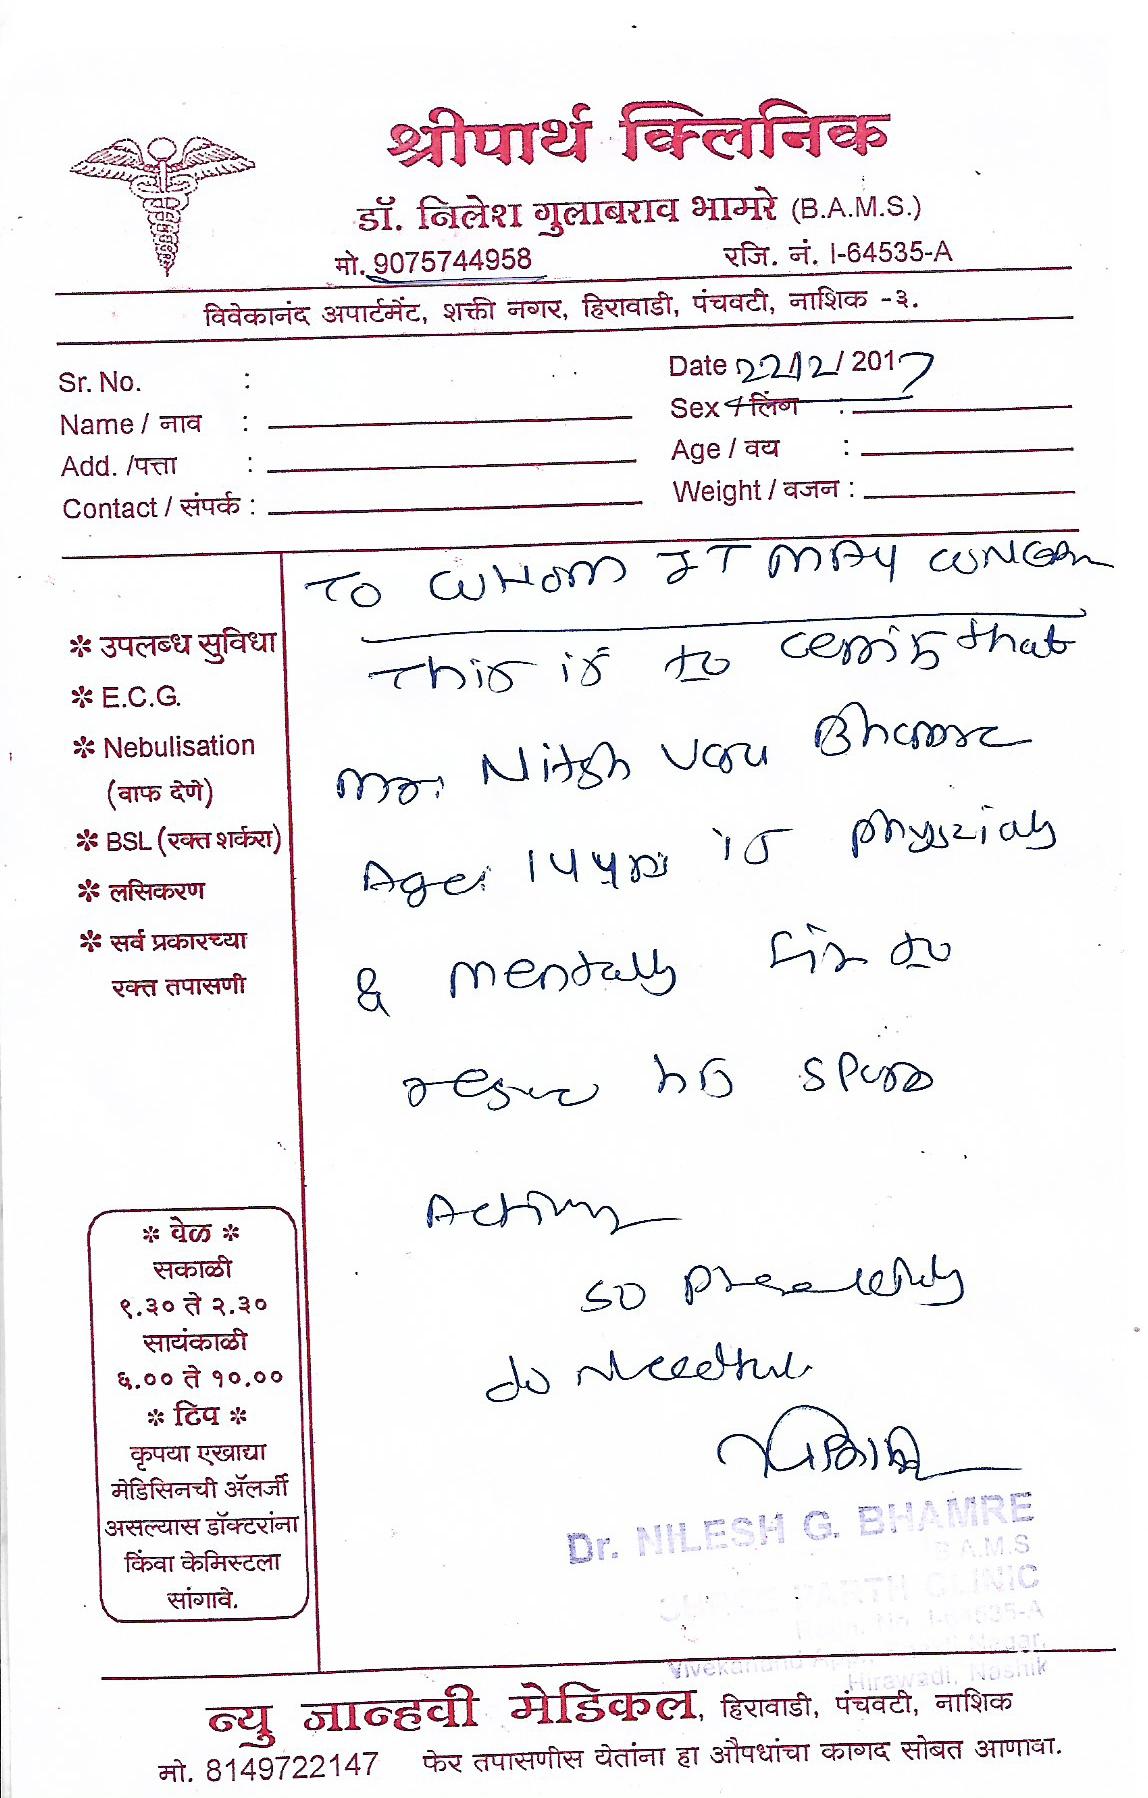 श्रीपार्थ क्लिनिक
डॉ. निलेश गुलाबराव भामरे (B.A.M.S.)
मो. 9075744958 रजि. नं. I-64535-A
विवेकानंद अपार्टमेंट, शक्ती नगर, हिरावाडी, पंचवटी, नाशिक -३.
Sr. No. :
Date 22/12/2017
Name / नाव :
Sex / लिंग :
Add. /पत्ता :
Age / वय :
Contact / संपर्क :
Weight / वजन :
TO WHOM IT MAY CONCERN
This is to certify that
Mr. Nitesh Bhamre
Age 14 yrs is physically
& mentally fit to
his sports
Activity
so
do needful
* उपलब्ध सुविधा
* E.C.G.
* Nebulisation
(वाफ देणे)
* BSL (रक्त शर्करा)
* लसिकरण
* सर्व प्रकारच्या
रक्त तपासणी
* वेळ *
सकाळी
९.३० ते २.३०
सायंकाळी
६.०० ते १०.००
* टिप *
कृपया एखाद्या
मेडिसिनची ॲलर्जी
असल्यास डॉक्टरांना
किंवा केमिस्टला
सांगावे.
Dr. NILESH G. BHAMRE
B.A.M.S
PARTH CLINIC
I-64535-A
Hirawadi, Nashik
न्यु जान्हवी मेडिकल, हिरावाडी, पंचवटी, नाशिक
मो. 8149722147 फेर तपासणीस येतांना हा औषधांचा कागद सोबत आणावा.